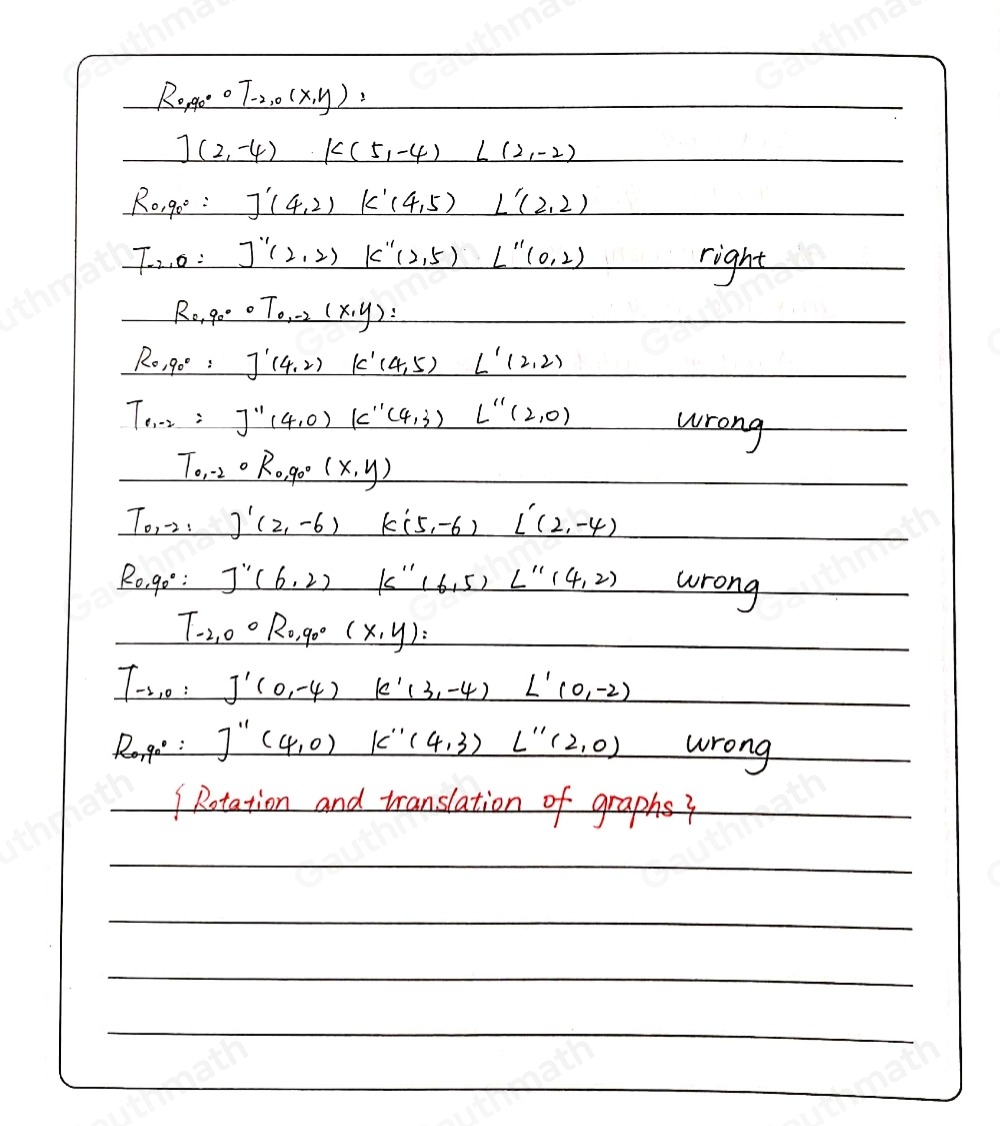 R₀,₉₀° ∘ T₋₂,₀ (x,y) :
J(2,-4) K(5,-4) L(2,-2)
R₀,₉₀° : J'(4,2) K'(4,5) L'(2,2)
T₋₂,₀ : J''(2,2) K''(2,5) L''(0,2) right
R₀,₉₀° ∘ T₀,₋₂ (x,y) :
R₀,₉₀° : J'(4,2) K'(4,5) L'(2,2)
T₀,₋₂ : J''(4,0) K''(4,3) L''(2,0) wrong
T₀,₋₂ ∘ R₀,₉₀° (x,y)
T₀,₋₂ : J'(2,-6) K'(5,-6) L'(2,-4)
R₀,₉₀° : J''(6,2) K''(6,5) L''(4,2) wrong
T₋₂,₀ ∘ R₀,₉₀° (x,y) :
T₋₂,₀ : J'(0,-4) K'(3,-4) L'(0,-2)
R₀,₉₀° : J''(4,0) K''(4,3) L''(2,0) wrong
{Rotation and translation of graphs}
Gauthmath